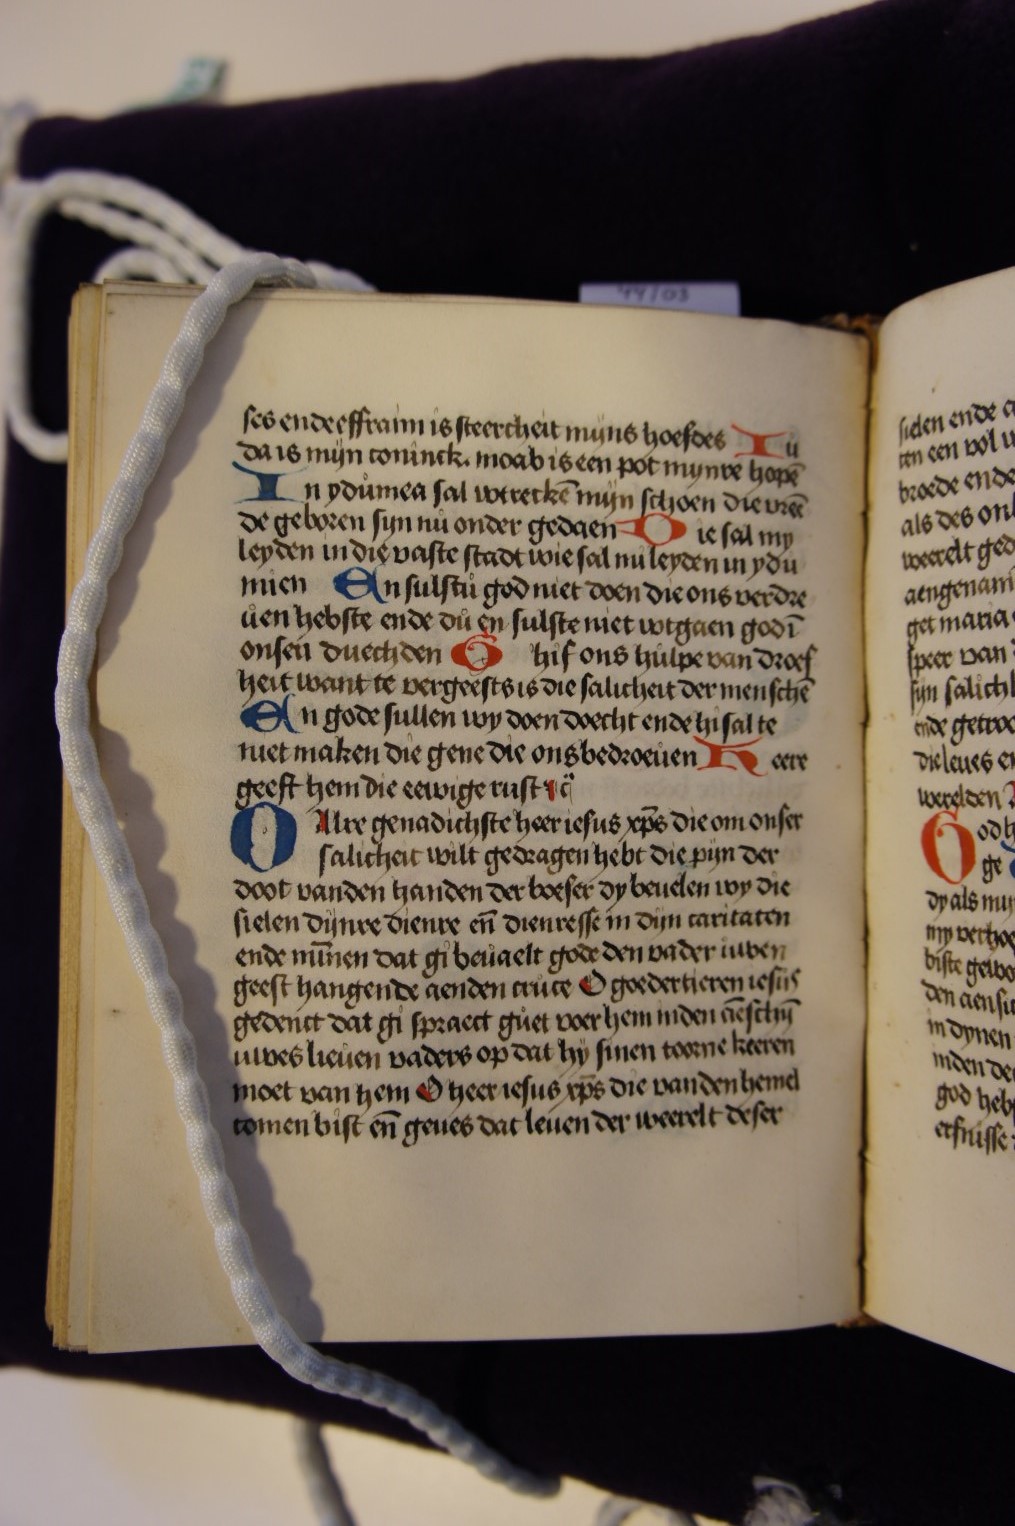 44/03
ses ende effraim is steercheit mijns hoefdes Iu
da is mijn coninck. moab is een pot mynre hopē
In ydumea sal wtreckē mijn schoen die vreē
de geboren sijn nu onder gedaen Die sal my
leyden in die vaste stadt wie sal mi leyden in ydu
mien En sulstu god niet doen die ons verdre
uen hebste ende du en sulste niet wtgaen godī
onsen duechden Ghif ons hulpe van droef
heit want te vergeefts is die salicheit der menschē
En gode sullen wy doen doecht ende hi sal te
niet maken die gene die ons bedroeuen Heere
geeft hem die eewige rust
O Alre genadichste heer iesus xp̄s die om onser
salicheit wilt gedragen hebt die pijn der
doot vanden handen der boeser dy beuelen wy die
sielen dijnre dienre en̄ dienresse in dijn caritaten
ende mīnen dat gi beuaelt gode den vader uwen
geest hangende aenden cruce O goedertieren iesus
gedenct dat gi spraect guet voer hem inden
uwes lieuen vaders op dat hy sinen toorne keeren
moet van hem O heer iesus xp̄s die vanden hemel
comen bist en̄ geues dat leuen der weerelt deser
sielen ende
ten een vol
broede ende
als des
weerelt
aengenam
get maria
speer van
sijn
ende
die leues
werelden
God
ge
dy als
my
biste
den
in dynen
inden
god